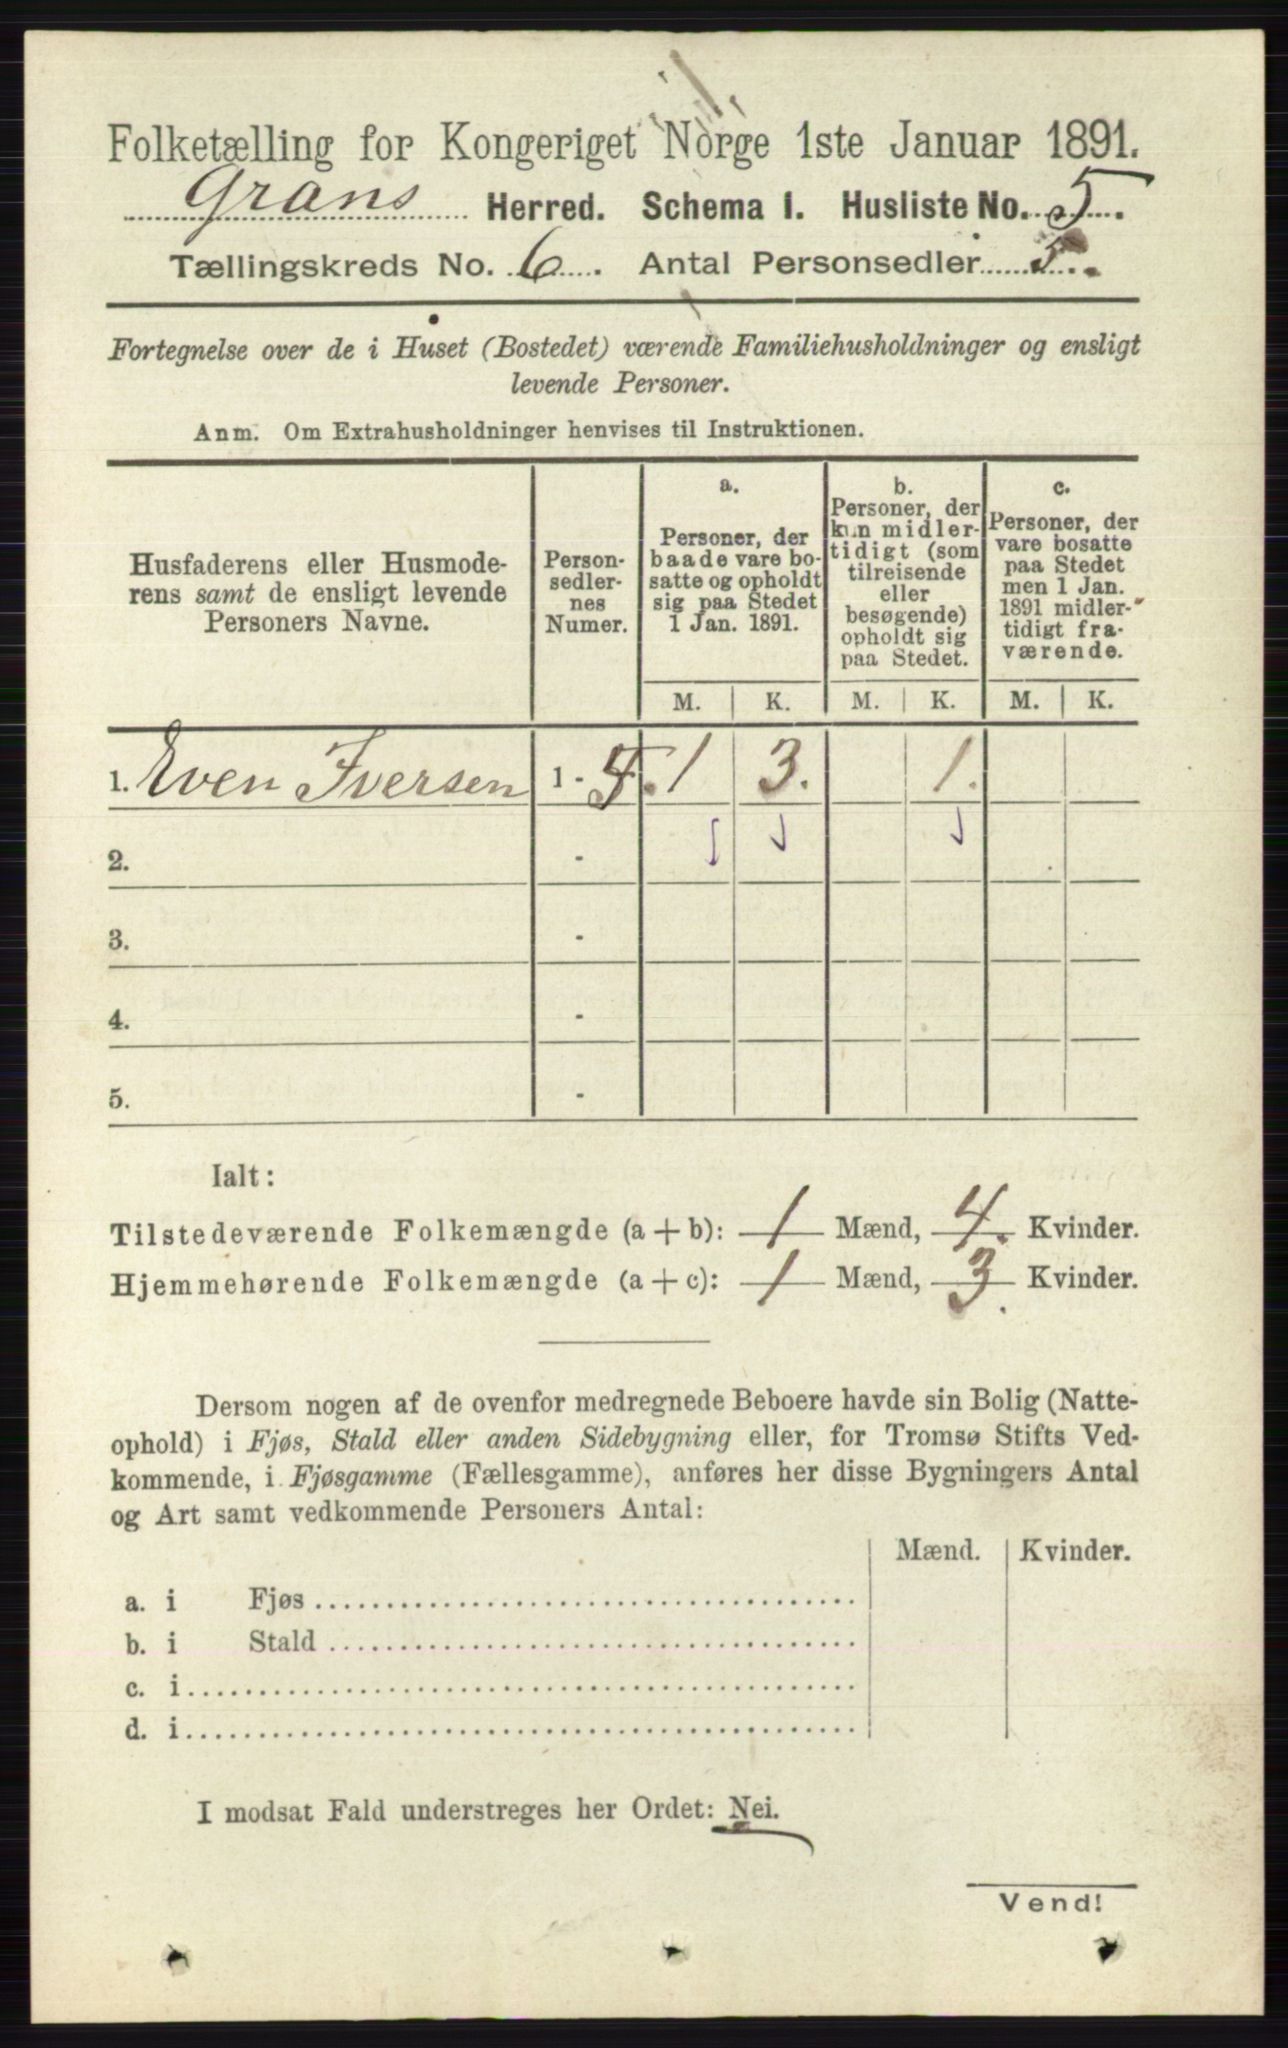 Folketælling for Kongeriget Norge 1ste Januar 1891.
Grans Herred. Schema I. Husliste No. 5.
Tællingskreds No. 6. Antal Personsedler 5.
Fortegnelse over de i Huset (Bostedet) værende Familiehusholdninger og ensligt
levende Personer.
Anm. Om Extrahusholdninger henvises til Instruktionen.
Husfaderens eller Husmode-
rens samt de ensligt levende
Personers Navne.
Person-
sedler-
nes
Numer.
a.
Personer, der
baade vare bo-
satte og opholdt
sig paa Stedet
1 Jan. 1891.
b.
Personer, der
kun midler-
tidigt (som
tilreisende
eller
besøgende)
opholdt sig
paa Stedet.
c.
Personer, der
vare bosatte
paa Stedet
men 1 Jan.
1891 midler-
tidigt fra-
værende.
M. K. M. K. M. K.
1. Even Iversen 1 - 5. 1 3. 1.
2. -
3. -
4. -
5. -
Ialt:
Tilstedeværende Folkemængde (a + b): 1 Mænd, 4. Kvinder.
Hjemmehørende Folkemængde (a + c): 1 Mænd, 3. Kvinder.
Dersom nogen af de ovenfor medregnede Beboere havde sin Bolig (Natte-
ophold) i Fjøs, Stald eller anden Sidebygning eller, for Tromsø Stifts Ved-
kommende, i Fjøsgamme (Fællesgamme), anføres her disse Bygningers Antal
og Art samt vedkommende Personers Antal:
Mænd. Kvinder.
a. i Fjøs
b. i Stald
c. i
d. i
I modsat Fald understreges her Ordet: Nei.
Vend!